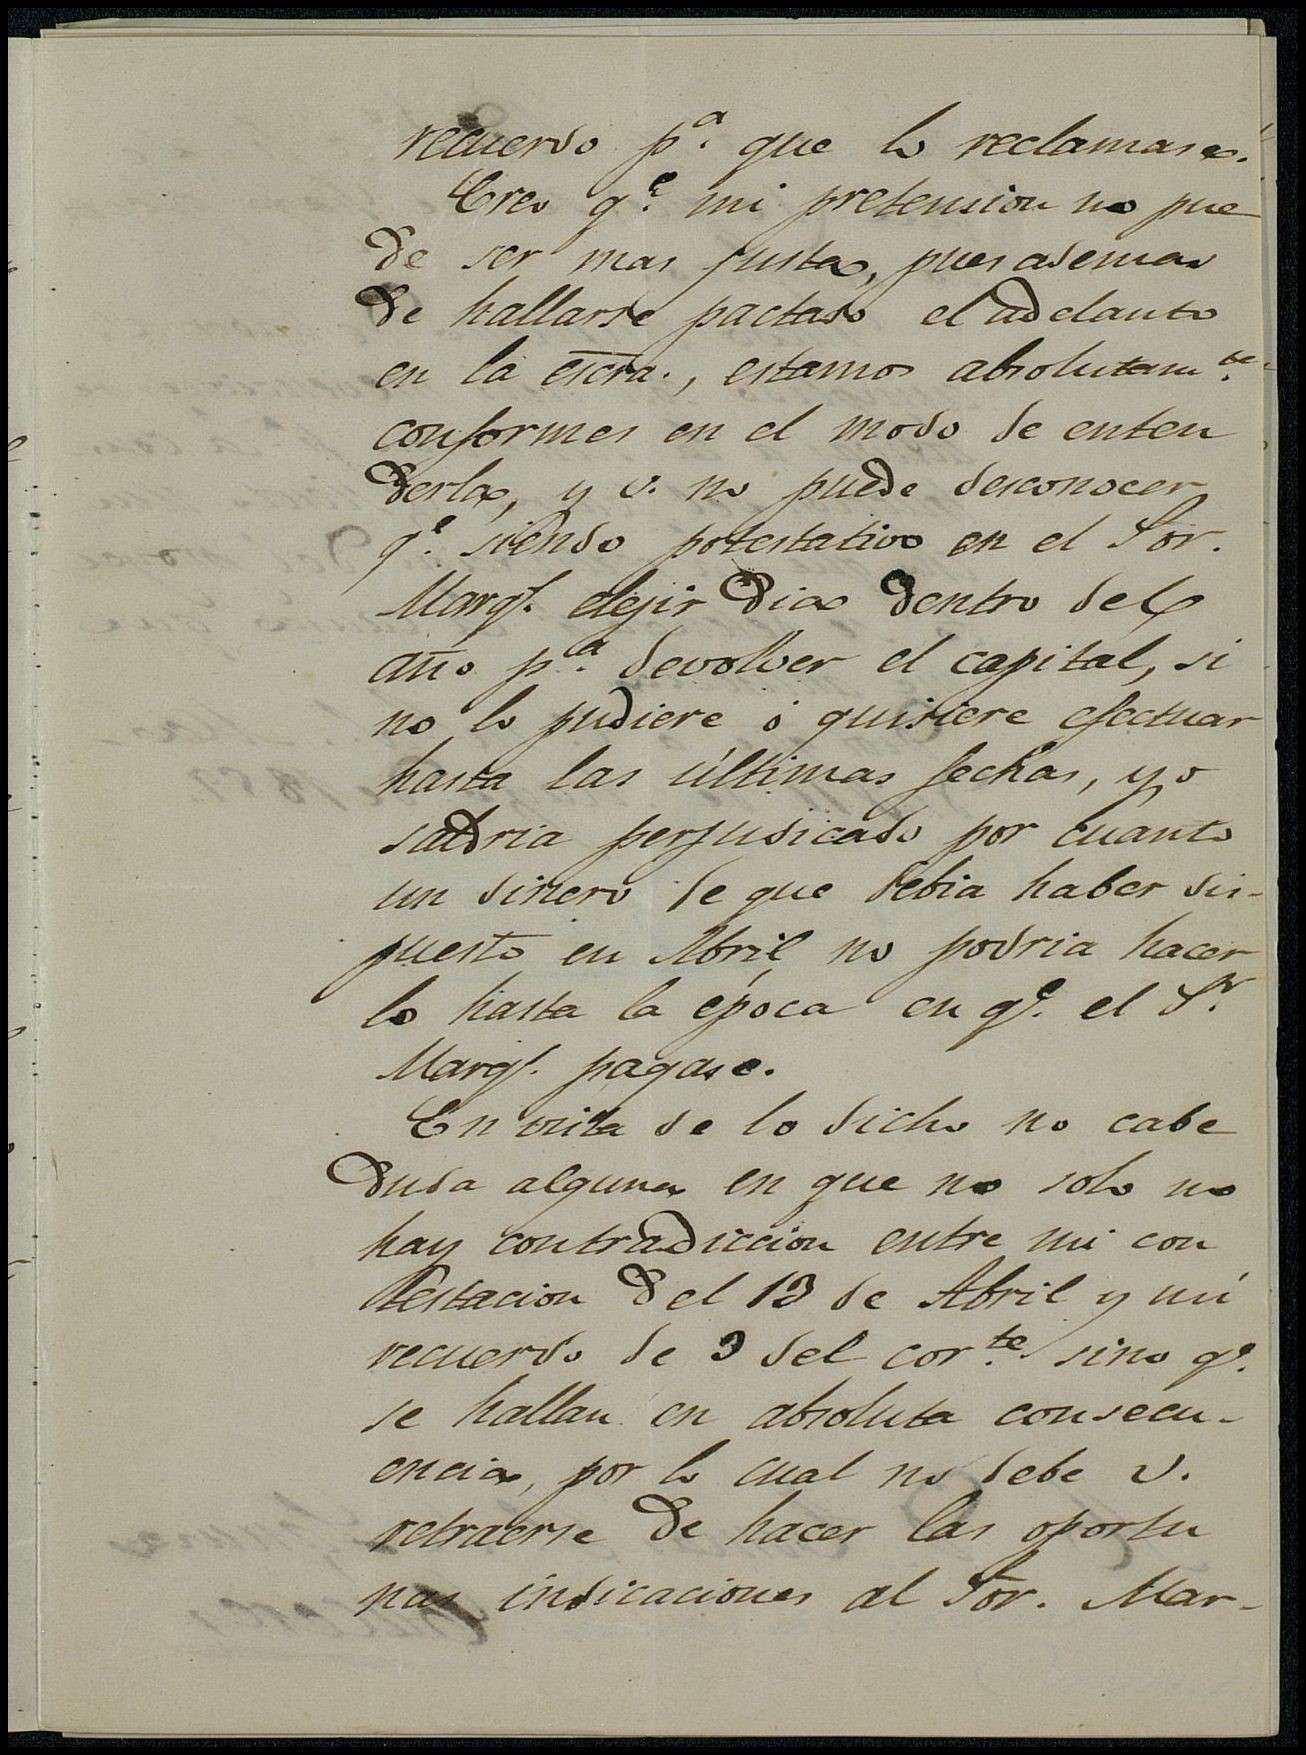 recuerdo p.ª que lo reclamase.
Creo q.e mi pretension no pue
de ser mas justa, pues ademas
de hallarse pactado el adelanto
en la escra., estamos absolutam.te
conformes en el modo de enten
derla, y v. no puede desconocer
q.e siendo potestativo en el Sor.
Marq.s elejir dia dentro del
año p.a devolver el capital, si
no lo pudiere ó quisiere efectuar
hasta las últimas fechas, yo
saldria perjudicado por cuanto
un dinero de que debia haber dis-
puesto en Abril, no podria hacer
lo hasta la época en q.e el S.r
Marq.s pagase.
En vista de lo dicho no cabe
duda alguna en que no solo no
hay contradiccion entre mi con
testacion del 13 de Abril y mi
recuerdo de 3 del cor.te sino q.e
se hallan en absoluta consecu-
encia, por lo cual no debe v.
retraerse de hacer las oportu
nas indicaciones al Sor. Mar-